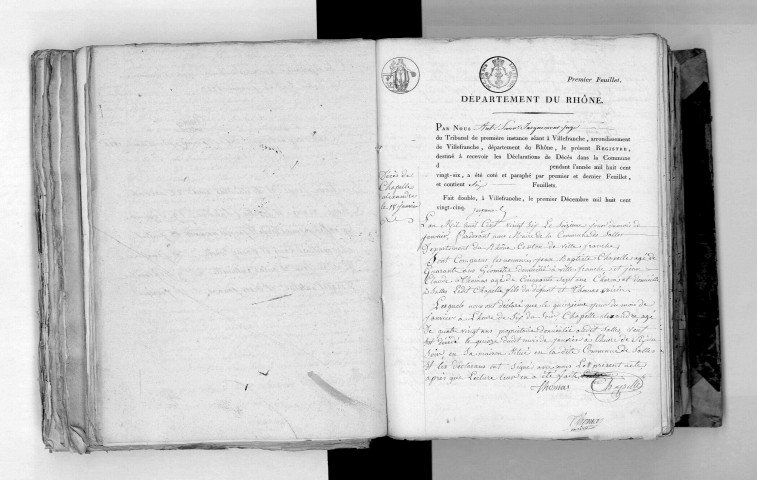 Premier Feuillet.
DÉPARTEMENT DU RHÔNE.
PAR NOUS juge
du Tribunal de première instance séant à Villefranche, arrondissement
de Villefranche, département du Rhône, le présent REGISTRE,
destiné à recevoir les Déclarations de Décès dans la Commune
d pendant l'année mil huit cent
vingt-six, a été coté et paraphé par premier et dernier Feuillet,
et contient Six Feuillets.
Fait double, à Villefranche, le premier Décembre mil huit cent
vingt-cinq.
Décès de
Chapelle
alexandre
le 15 janvier
L'an Mil huit Cent vingt Six Le Seizieme jour du mois de
janvier, Pardevant nous Maire de la Commune de Salles
Departement du Rhône Canton de villefranche,
Sont Comparus les nommés jean Baptiste Chapelle agé de
Quarante ans Géomètre domicilié à villefranche, et jean
Claude Thomas agé de Cinquante sept ans Charon domicilié
à Salles Ledit Chapelle fils du défunt et Thomas voisin
Lesquels nous ont déclaré que le quinzieme jour du mois de
janvier à L'heure de Six du Soir, Chapelle alexandre, agé
de quatre vingt ans propriétaire domicilié audit Salles
est décédé le quinze dudit mois de janvier à l'heure de Six du
Soir, en Sa maison Située en la dite Commune de Salles
Et les déclarans ont Signé avec nous Le present acte
après que Lecture leur en a été faite
Thomas Chapelle
Thomas